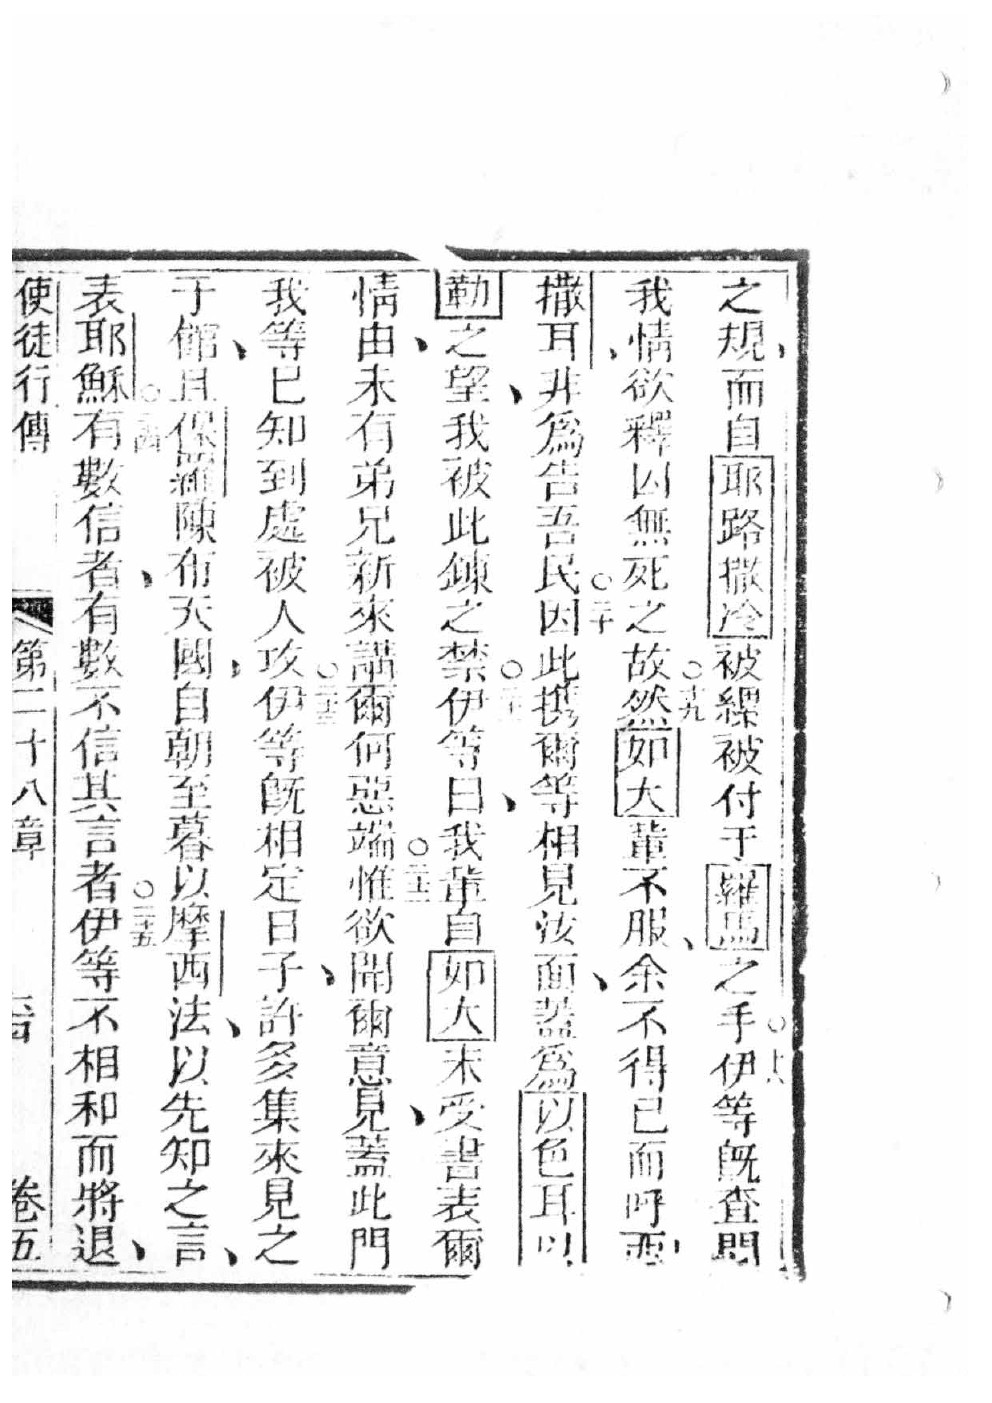 之規、而自耶路撒冷被縲被付于羅馬之手○十八伊等旣查問
我情、欲釋因無死之故○十九然如大輩不服、余不得已而呼西
撒耳、非爲告吾民○二十因此携爾等相見汝面、蓋爲以色耳以
勒之望、我被此鍊之禁○二十一伊等曰、我輩自如大未受書表爾
情由、未有弟兄新來講爾何惡端○二十二惟欲聞爾意見、蓋此門
我等已知到處被人攻○二十三伊等旣相定日子、許多集來見之
于館、且保羅陳布天國、自朝至暮以摩西法、以先知之言、
表耶穌○二十四有數信者、有數不信其言者○二十五伊等不相和而將退、
使徒行傳 第二十八章 卷五